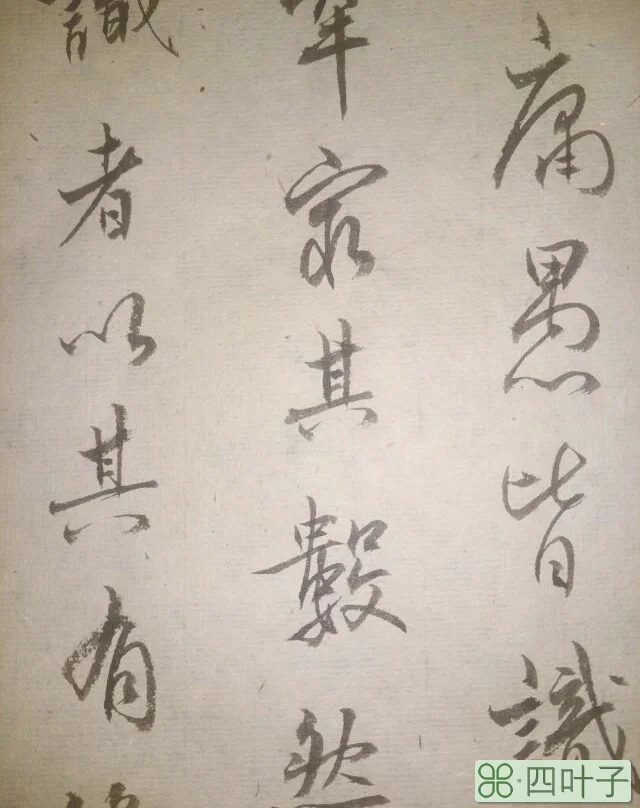 庸愚皆識
罕窮其數然
識者以其有
四叶子